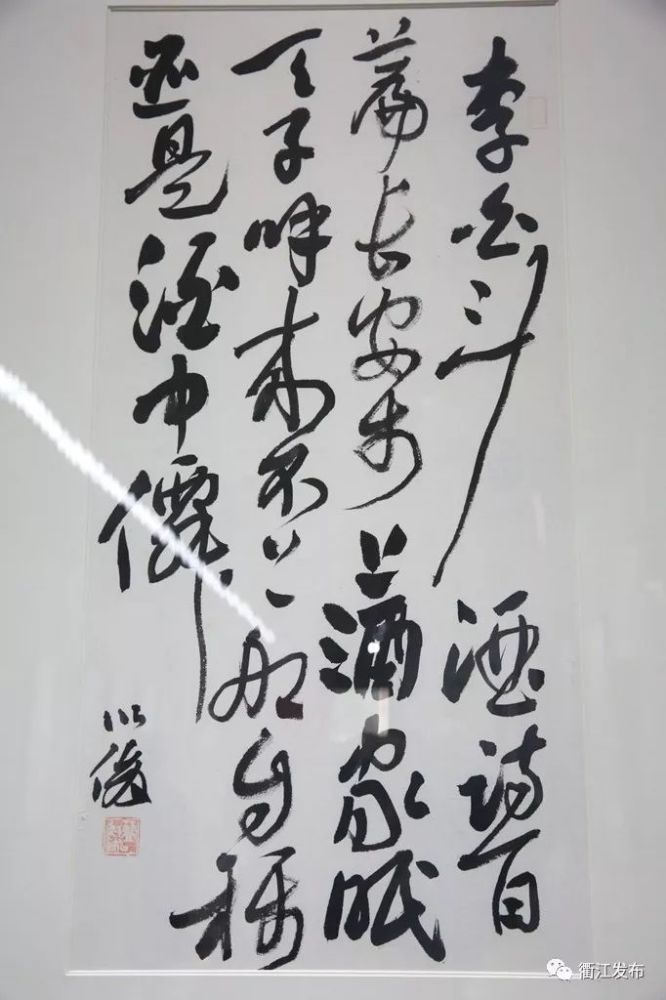 李白斗酒诗百
篇长安市上酒家眠
天子呼来不上船自称
臣是酒中僊
衢江发布